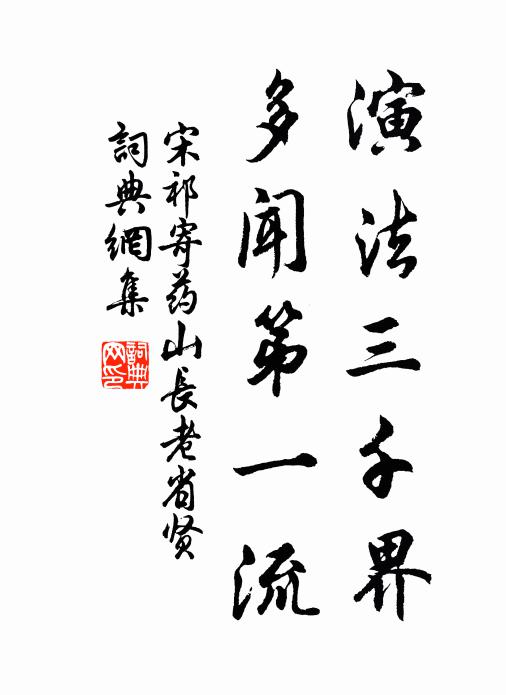 演法三千界
多聞第一流
宋祁寄药山長老省贤
詞典網集
詞典網印